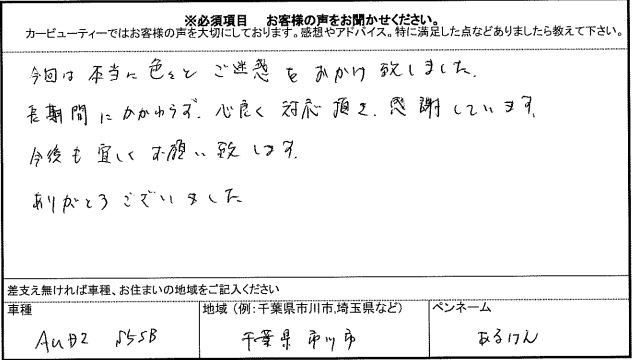 ※必須項目 お客様の声をお聞かせください。
カービューティーではお客様の声を大切にしております。感想やアドバイス。特に満足した点などありましたら教えて下さい。
今回は本当に色々とご迷惑をおかけ致しました。
長期間にかかわらず、心良く対応頂き、感謝しています。
今後も宜しくお願い致します。
ありがとうございました
差支え無ければ車種、お住まいの地域をご記入ください
車種 地域（例：千葉県市川市,埼玉県など） ペンネーム
Audi S5SB 千葉県市川市 あるけん